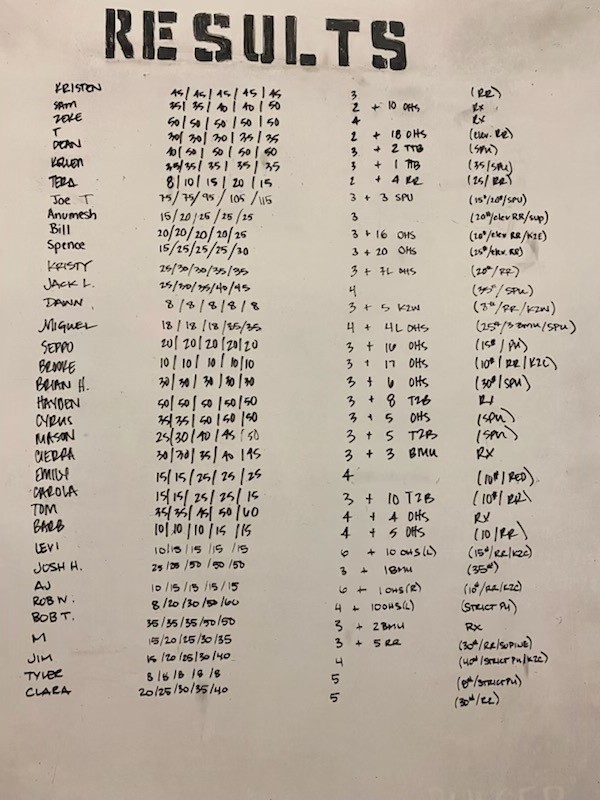 RESULTS
KRISTEN 45/45/45/45/45 3 (RR)
SAM 35/35/40/40/50 2 + 10 OHS RX
ZEKE 50/50/50/50/50 4 RX
T 30/30/30/35/35 2 + 18 OHS (elev. RR)
DEAN 40/50/50/50/50 3 + 2 TTB (SPU)
35/35/35/35/35 3 + 1 TTB (35/SPU)
TERA 8/10/15/20/15 2 + 4 RR (25/RR)
Joe T 75/75/95/105/115 3 + 3 SPU (15#/20#/SPU)
Anumesh 15/20/25/25/25 3 (20#/elev RR/sup)
Bill 20/20/20/20/25 3 + 16 OHS (20#/elev RR/K2E)
Spence 15/25/25/25/30 3 + 20 OHS (25#/elev. RR)
KRISTY 25/30/30/35/35 3 + 7L OHS (20#/RR)
JACK L. 25/30/35/40/45 4 (35#/SPU)
DAWN 8/8/8/8/8 3 + 5 (8#/RR/)
MIGUEL 18/18/18/35/35 4 + 4L OHS (25#/3 BMU/SPU)
SEPPO 20/20/20/20/20 3 + 16 OHS (15#/PU)
BROOKE 10/10/10/10/10 3 + 17 OHS (10#/RR/K2C)
BRIAN H. 30/30/30/30/30 3 + 6 OHS (30#/SPU)
HAYDEN 50/50/50/50/50 3 + 8 T2B RX
CYRUS 35/35/50/50/50 3 + 5 OHS (SPU)
MASON 25/30/40/45/50 3 + 5 T2B (SPU)
CIERRA 30/30/35/40/45 3 + 3 BMU RX
EMILY 15/15/25/25/25 4 (10#/RED)
CAROLA 15/15/25/25/15 3 + 10 T2B (10#/RR)
TOM 35/35/45/50/60 4 + 4 OHS RX
BARB 10/10/10/15/15 4 + 5 OHS (10/RR)
LEVI 10/15/15/15/15 6 + 10 OHS(L) (15#/RR/K2C)
JOSH H. 25/25/50/50/50 3 + 1 BMU (35#)
AJ 10/15/15/15/15 6 + 1 OHS(R) (10#/RR/K2C)
ROB W. 8/20/30/50/60 4 + 10 OHS(L) (STRICT PU)
BOB T. 35/35/35/50/50 3 + 2 BMU RX
M 15/20/25/30/35 3 + 5 RR (30#/RR/SUPINE)
JIM 15/20/25/30/40 4 (40#/STRICT PU/K2C)
TYLER 8/8/8/8/8 5 (8#/STRICT PU)
CLARA 20/25/30/35/40 5 (30#/RR)